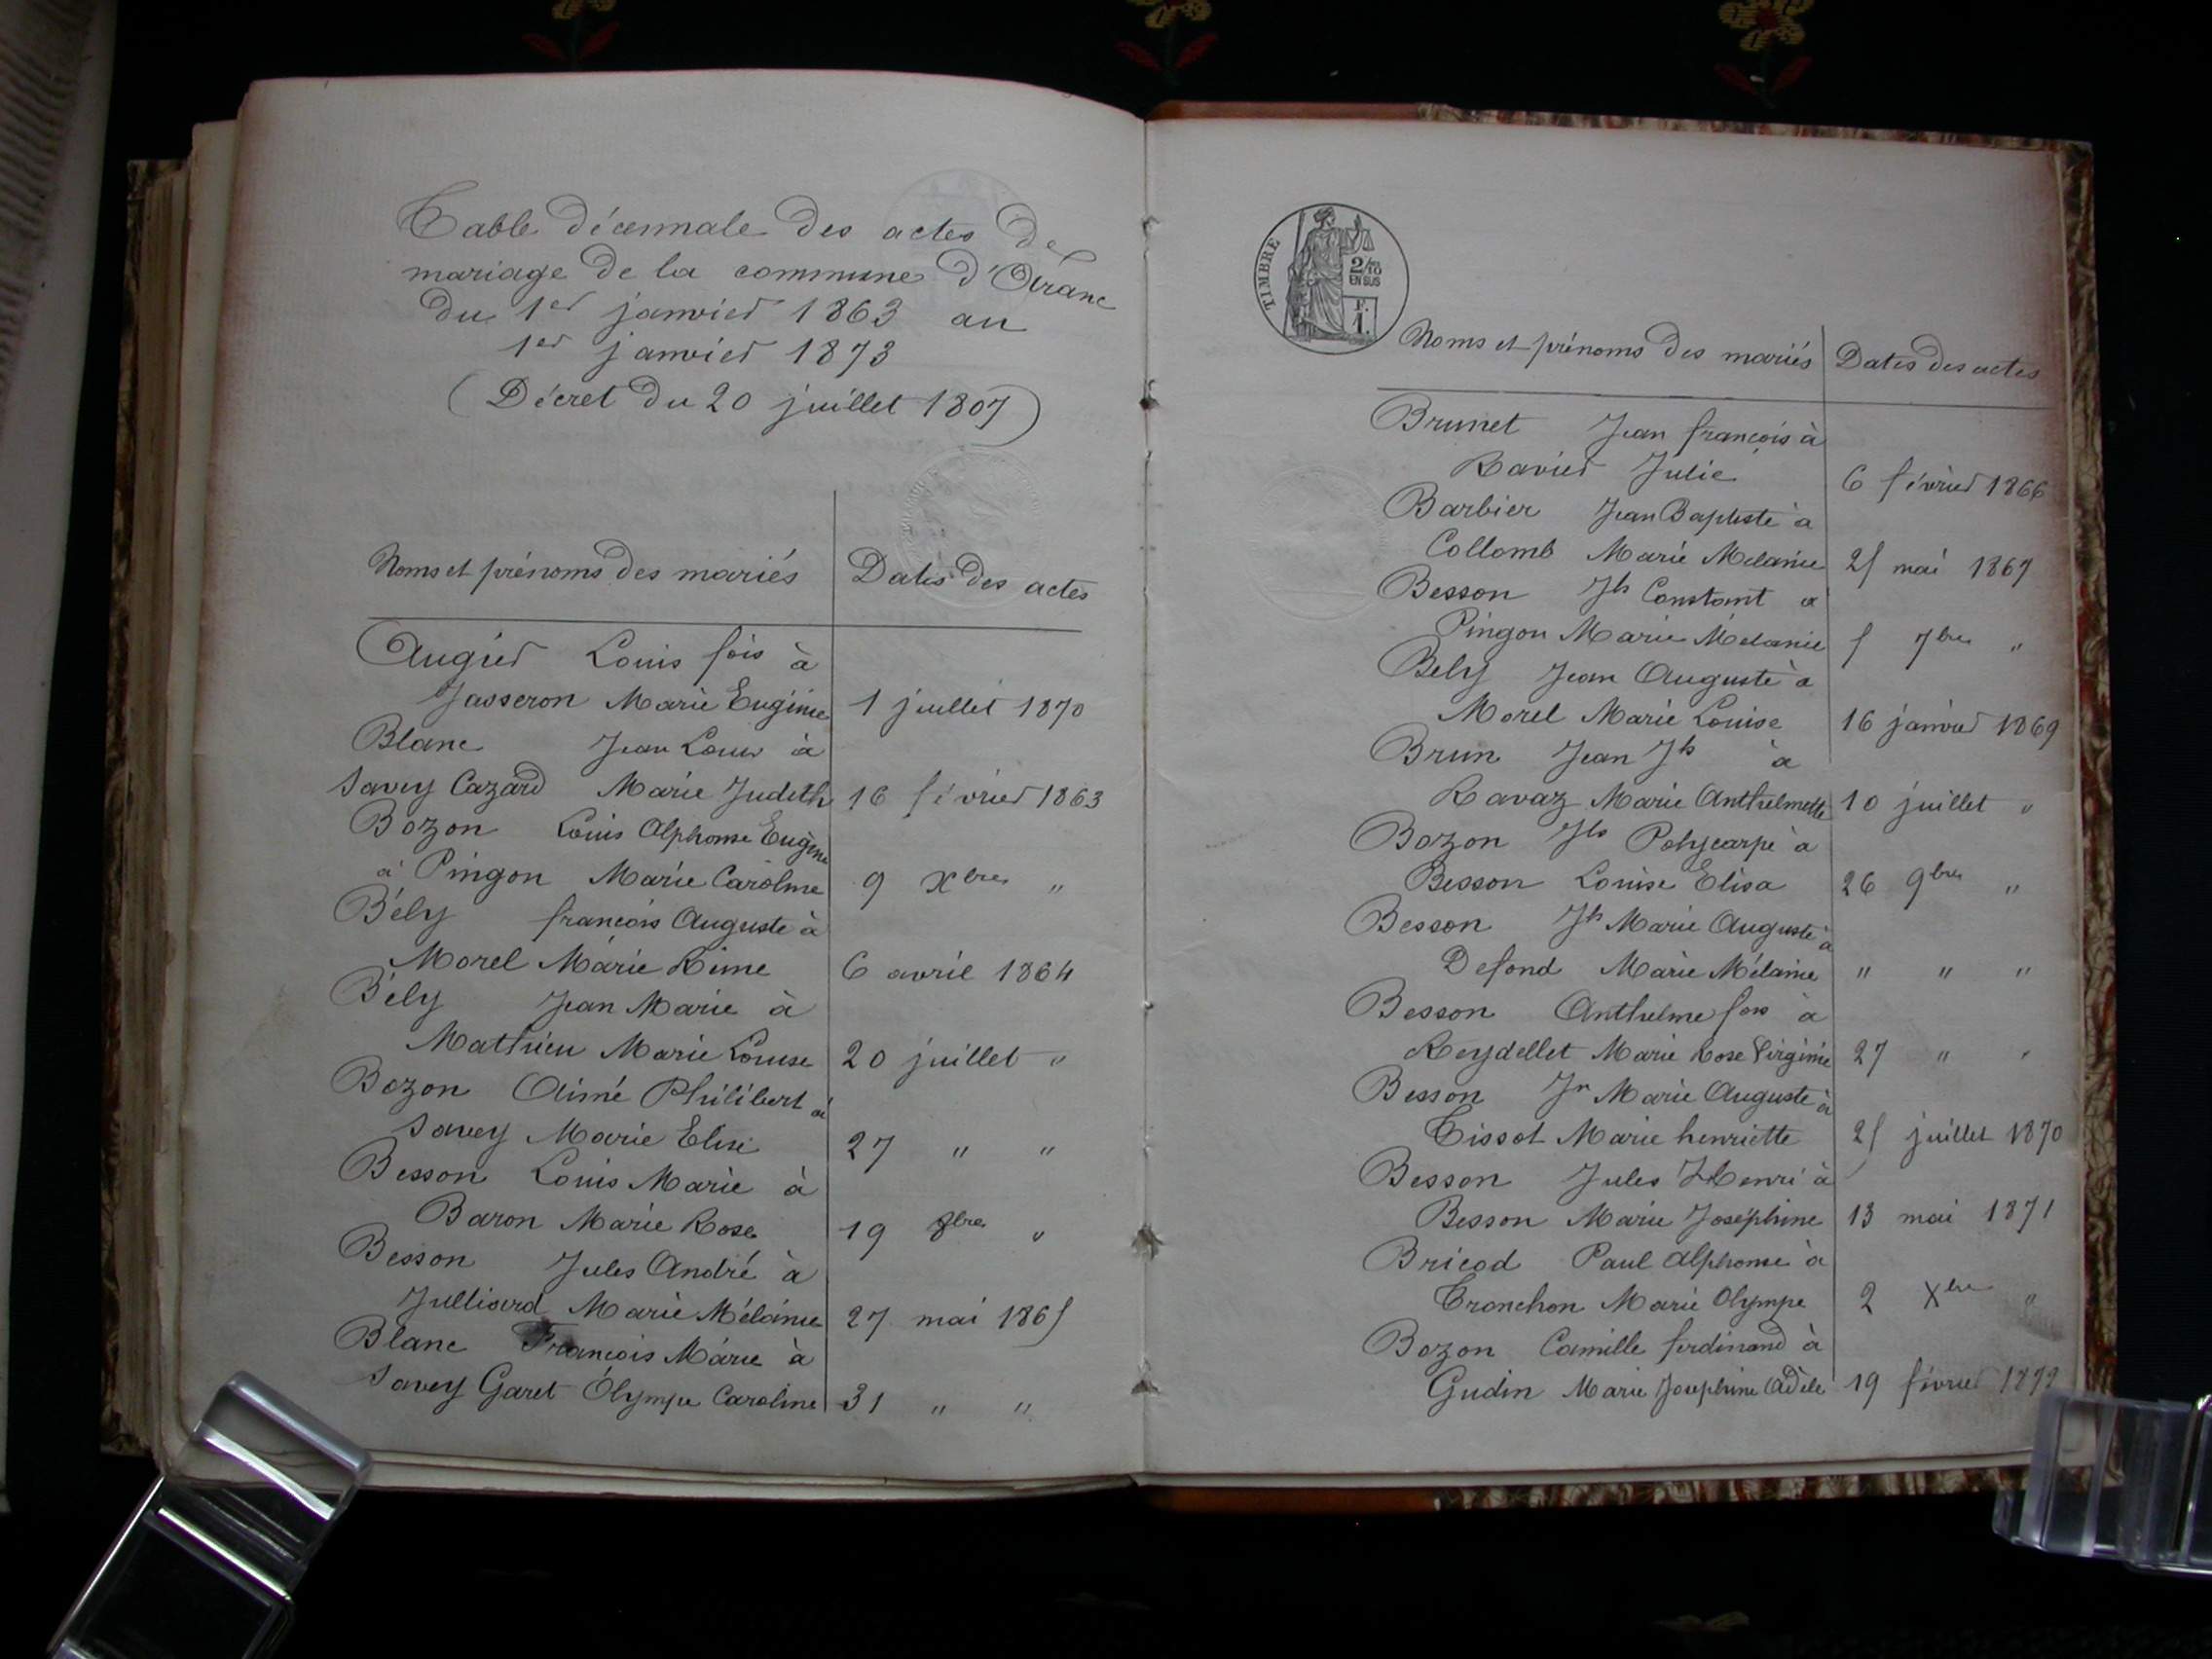 Table décennale des actes de
mariage de la commune d'Oranc
du 1er janvier 1863 au
1er janvier 1873
(Décret du 20 juillet 1807)
Noms et prénoms des mariés Dates des actes
Augier Louis fois à
Jasseron Marie Eugénie 1 juillet 1870
Blanc Jean Louis à
Savey Cazard Marie Judith 16 février 1863
Bozon Louis Alphonse Eugène
à Pingon Marie Caroline 9 Xbre "
Bély françois Auguste à
Morel Marie 6 avril 1864
Bély Jean Marie à
Mathieu Marie Louise 20 juillet "
Bozon Aimé Philibert à
Savey Marie Elise 27 " "
Besson Louis Marie à
Baron Marie Rose 19 8bre "
Besson Jules André à
Julliard Marie Mélanie 27 mai 1865
Blanc François Marie à
Savey Garet Olympe Caroline 31 " "
TIMBRE
2/10
EN SUS
F.
1.
Noms et prénoms des mariés Dates des actes
Brunet Jean françois à
Ravier Julie 6 février 1866
Barbier Jean Baptiste à
Collomb Marie Mélanie 25 mai 1867
Besson Jh Constant à
Pingon Marie Mélanie 5 7bre "
Bely Jean Auguste à
Morel Marie Louise 16 janvier 1869
Brun Jean Jh à
Ravaz Marie Anthelmette 10 juillet "
Bozon Jh Polycarpe à
Besson Louise Elisa 26 9bre "
Besson Jh Marie Auguste à
Defond Marie Mélanie " " "
Besson Anthelme fois à
Reydellet Marie Rose Virginie 27 " "
Besson Jn Marie Auguste à
Tissot Marie henriette 25 juillet 1870
Besson Jules Henri à
Besson Marie Joséphine 13 mai 1871
Bricod Paul Alphonse à
Tronchon Marie Olympe 2 Xbre "
Bozon Camille ferdinand à
Gudin Marie Joséphine Adèle 19 février 1872